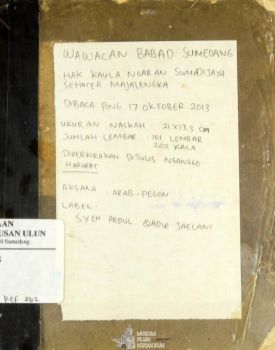 WAWACAN BABAD SUMEDANG
HAK KAULA NGARAN SUMADIJAYA
SEHATER MAJALENGKA
DIBACA PING 17 OKTOBER 2013
UKURAN NASKAH : 21X17,5 CM
JUMLAH LEMBAR : 101 LEMBAR
202 KACA
DIPERKIRAKAN DITULIS NGANGGO
HARUPAT
AKSARA : ARAB-PEGON
LABEL :
SYEH ABDUL QADIR JAELANI
AAN
EUSAN ULUN
0 Sumedang
REF 262
MUSEUM
PRABU
GEUSAN ULUN